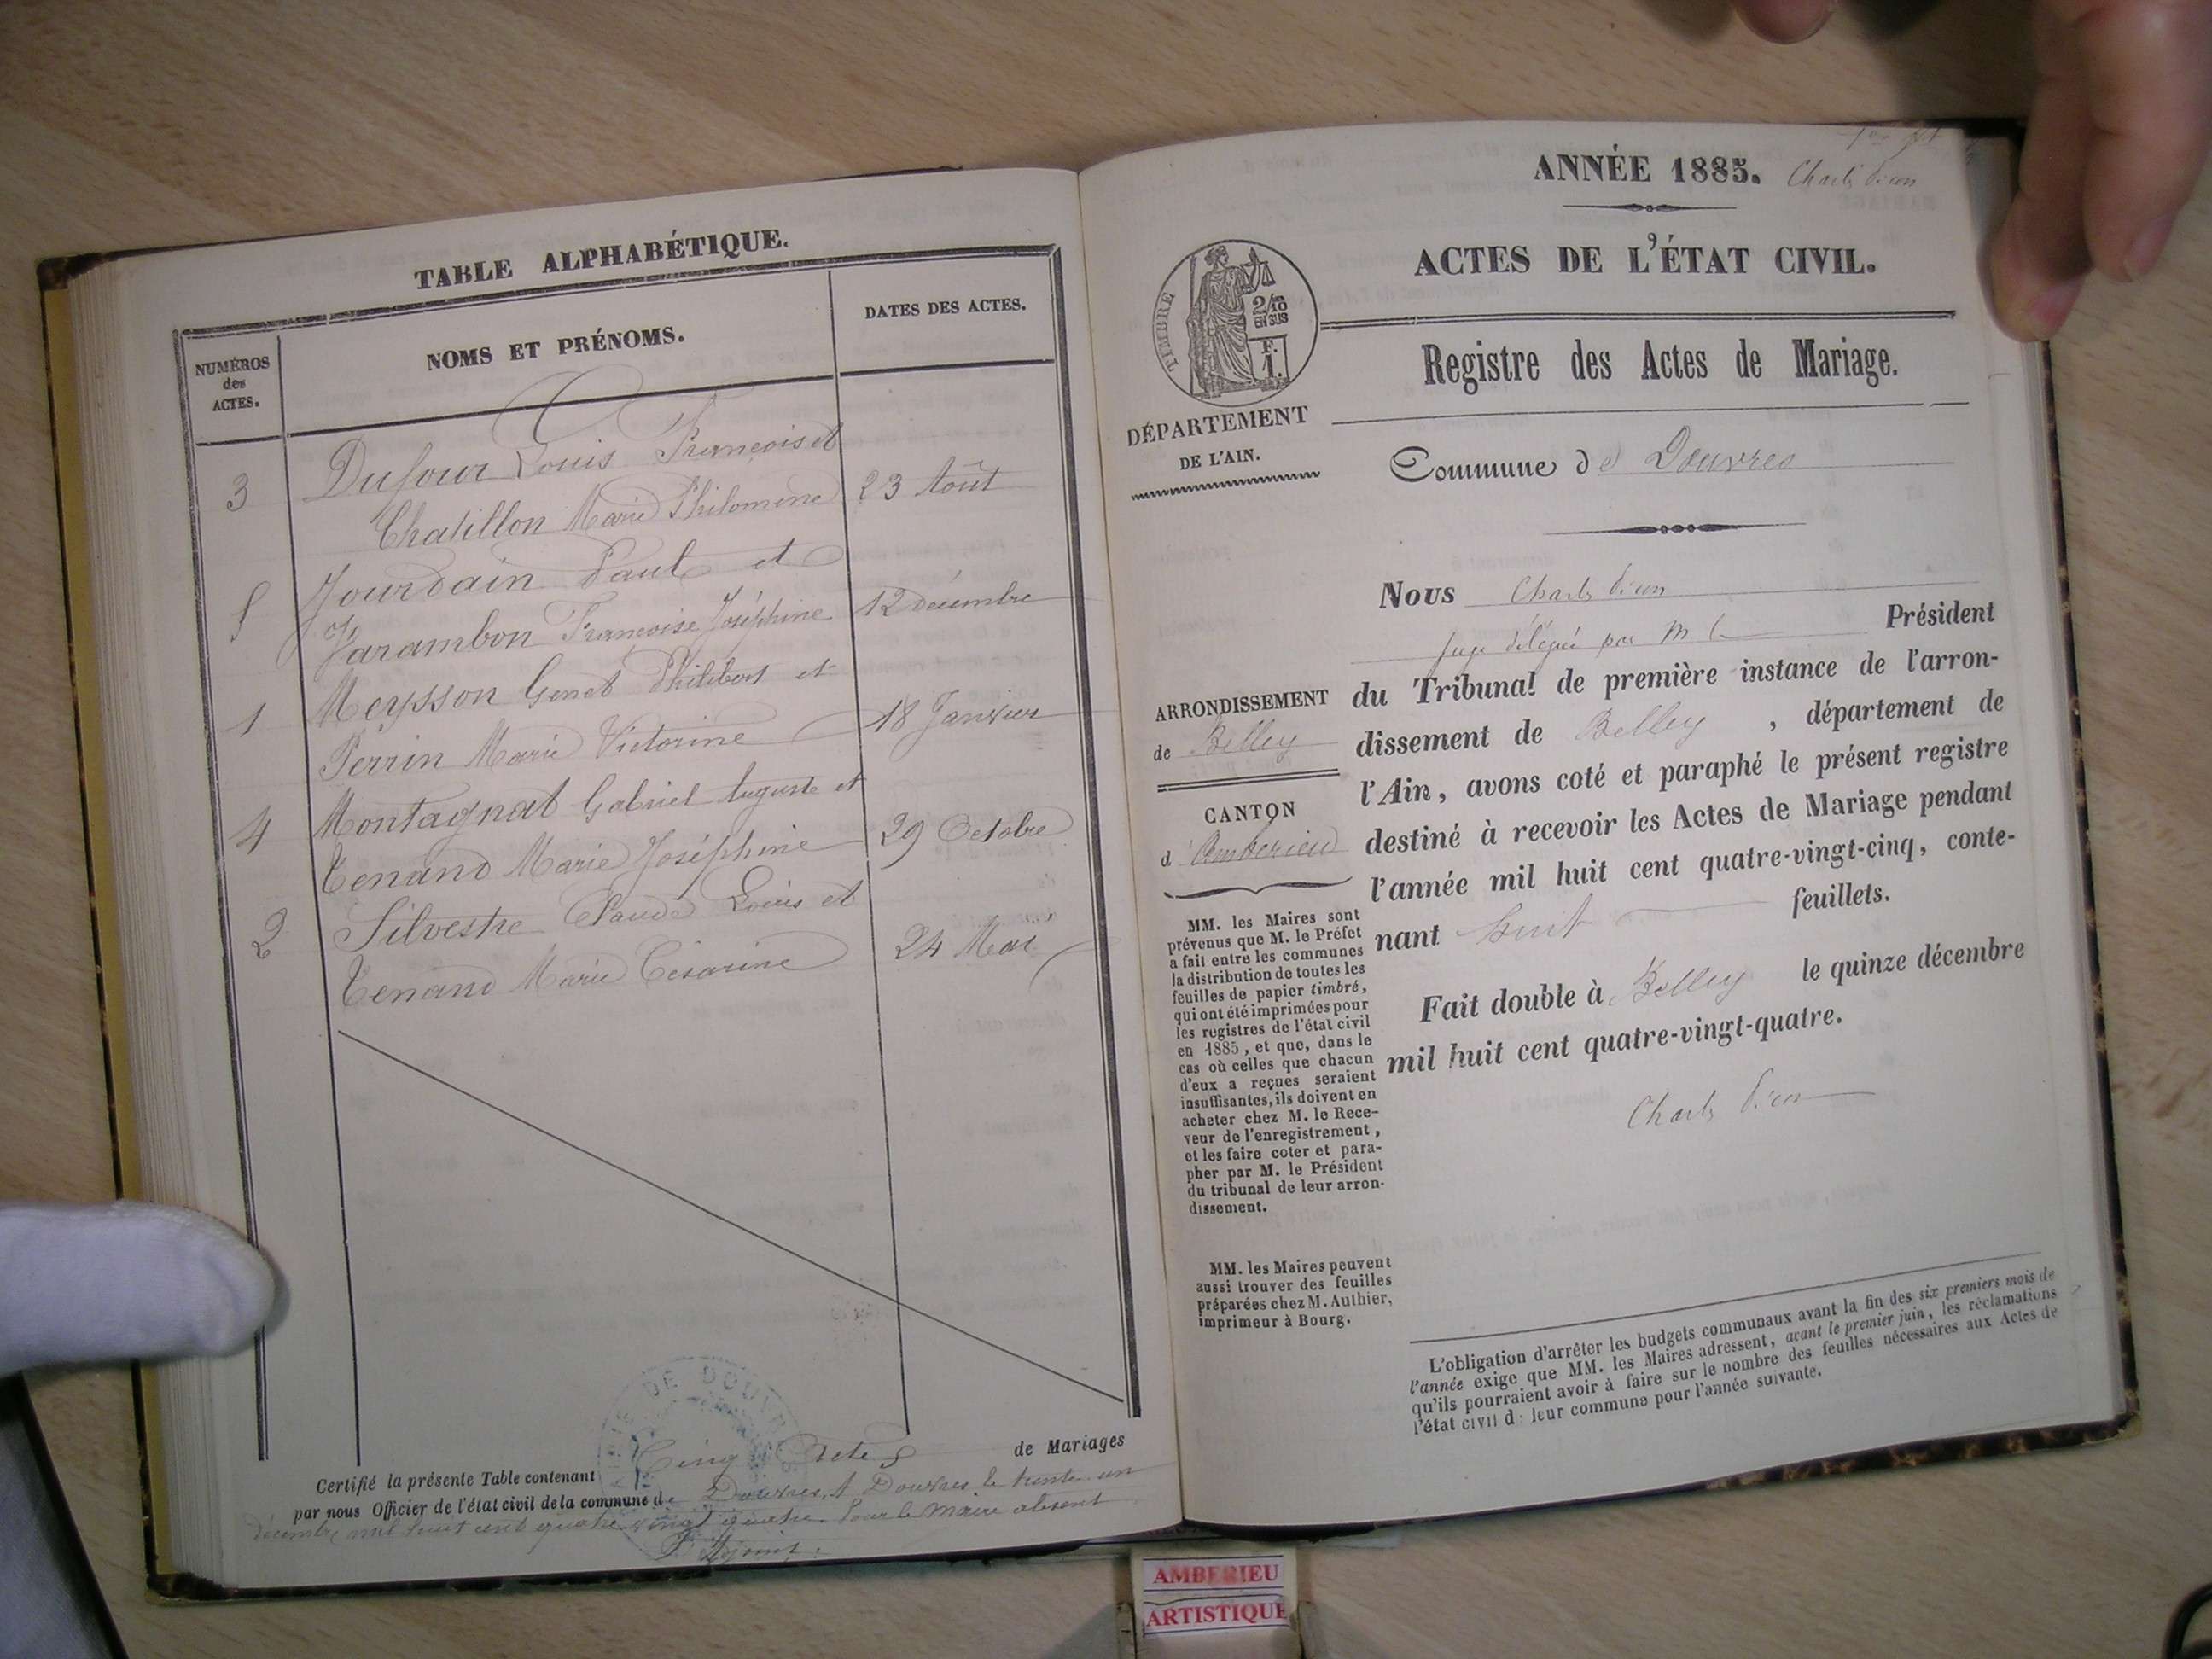 TABLE ALPHABÉTIQUE.
NUMÉROS
des
ACTES.
NOMS ET PRÉNOMS.
DATES DES ACTES.
3
Dufour Louis François et
Chatillon Marie Philomène
23 Août
5
Jourdain Paul et
Jarambon Françoise Joséphine
12 décembre
1
Meysson Genet Philibert et
Perrin Marie Victorine
18 Janvier
4
Montagnat Gabriel Auguste et
Tenand Marie Joséphine
29 Octobre
2
Silvestre Claude Louis et
Tenand Marie Césarine
24 Mai
DE DOUVRES
Certifié la présente Table contenant Cinq Actes de Mariages
par nous Officier de l'état civil de la commune de Douvres, A Douvres le trente un
décembre mil huit cent quatre vingt quatre. Pour le Maire absent
l'Adjoint.
Charles
ANNÉE 1885.
ACTES DE L'ÉTAT CIVIL.
TIMBRE
2/10
EN SUS
F.
1.
Registre des Actes de Mariage.
DÉPARTEMENT
DE L'AIN.
Commune de Douvres
Nous Charles
Juge délégué par M le Président
du Tribunal de première instance de l'arron-
dissement de Belley, département de
l'Ain, avons coté et paraphé le présent registre
destiné à recevoir les Actes de Mariage pendant
l'année mil huit cent quatre-vingt-cinq, conte-
nant huit feuillets.
Fait double à Belley le quinze décembre
mil huit cent quatre-vingt-quatre.
Charles
ARRONDISSEMENT
de Belley
CANTON
d'Ambérieu
MM. les Maires sont
prévenus que M. le Préfet
a fait entre les communes
la distribution de toutes les
feuilles de papier timbré,
qui ont été imprimées pour
les registres de l'état civil
en 1885, et que, dans le
cas où celles que chacun
d'eux a reçues seraient
insuffisantes, ils doivent en
acheter chez M. le Rece-
veur de l'enregistrement,
et les faire coter et para-
pher par M. le Président
du tribunal de leur arron-
dissement.
MM. les Maires peuvent
aussi trouver des feuilles
préparées chez M. Authier,
imprimeur à Bourg.
L'obligation d'arrêter les budgets communaux avant la fin des six premiers mois de
l'année exige que MM. les Maires adressent, avant le premier juin, les réclamations
qu'ils pourraient avoir à faire sur le nombre des feuilles nécessaires aux Actes de
l'état civil d: leur commune pour l'année suivante.
AMBERIEU
ARTISTIQUE